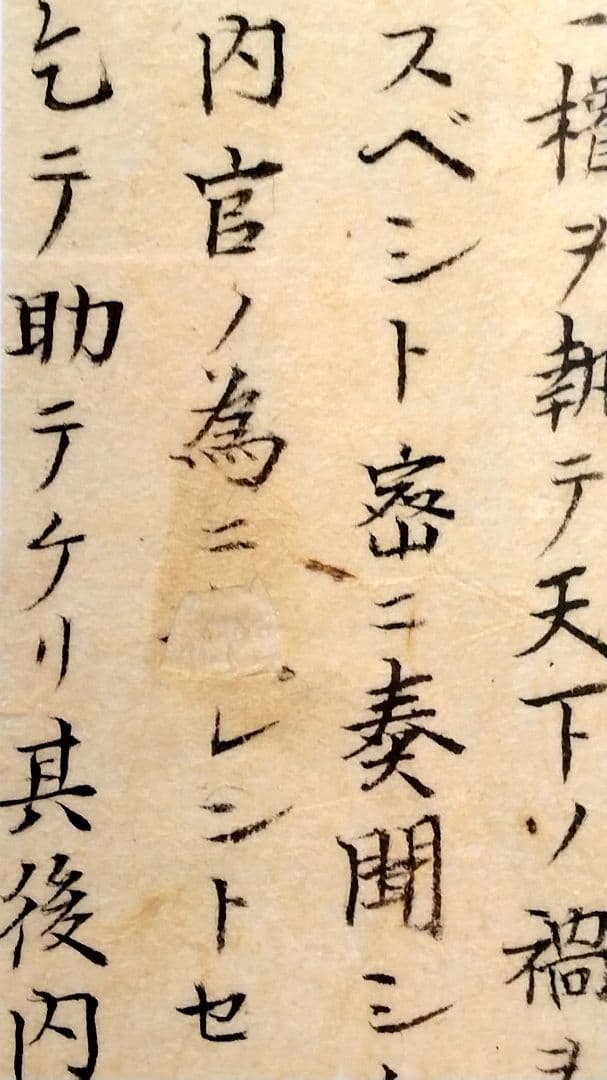 権ヲ執テ天下ノ禍ヲ
スベシト密ニ奏聞シ
内官ノ為ニレントセ
乞テ助テケリ其後内